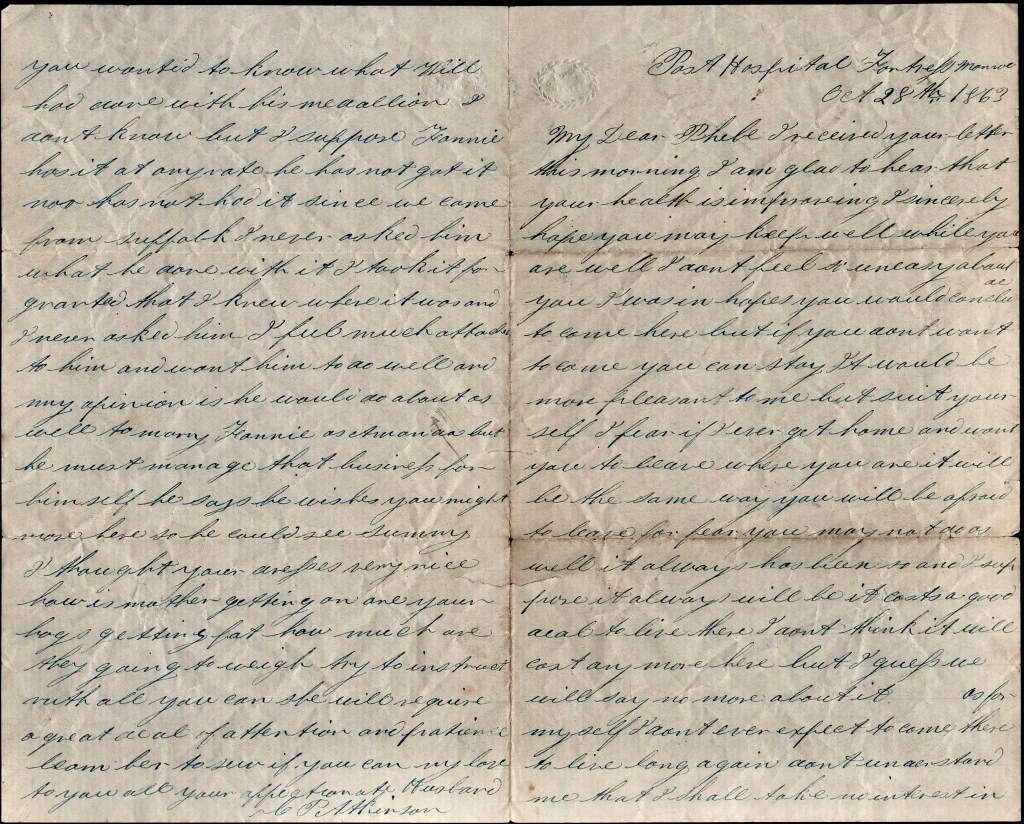 Post Hospital Fortress Monroe
Oct 28th 1863
My Dear Phebe I received your letter
this morning I am glad to hear that
your health is improveing I sincerely
hope you may keep well while you
are well I dont feel so uneasy about
you I was in hopes you would conclude
to come here but if you dont want
to come you can stay It would be
more pleasant to me but suit your-
self I fear if I ever get home and want
you to leave where you are it will
be the same way you will be afraid
to leave for fear you may not do as
well it always has been so and I sup
pose it always will be it costs a good
deal to live there I dont think it will
cost any more here but I guess we
will say no more about it as for
myself I dont ever expect to come there
to live long again dont understand
me that I shall take no interest in
you wantid to know what Will
had done with his medallion I
dont know but I suppose Fannie
has it at any rate he has not got it
nor has not had it since we came
from suffolk I never asked him
what he done with it I took it for-
granted that I knew where it was and
I never asked him I ful much attache
to him and want him to do well and
my opinion is he would do about as
well to marry Fannie as Amandas but
he must manage that business for-
himself he says he wishes you might
more here so he could see summy
I thought your dresses very nice
how is mother getting on are your
hogs getting fat how much are
they going to weigh try to instruct
ruth all you can she will require
a great deal of attention and patience
learn her to sew if you can my love
to you all your affectionate Husband
C P Atkinson